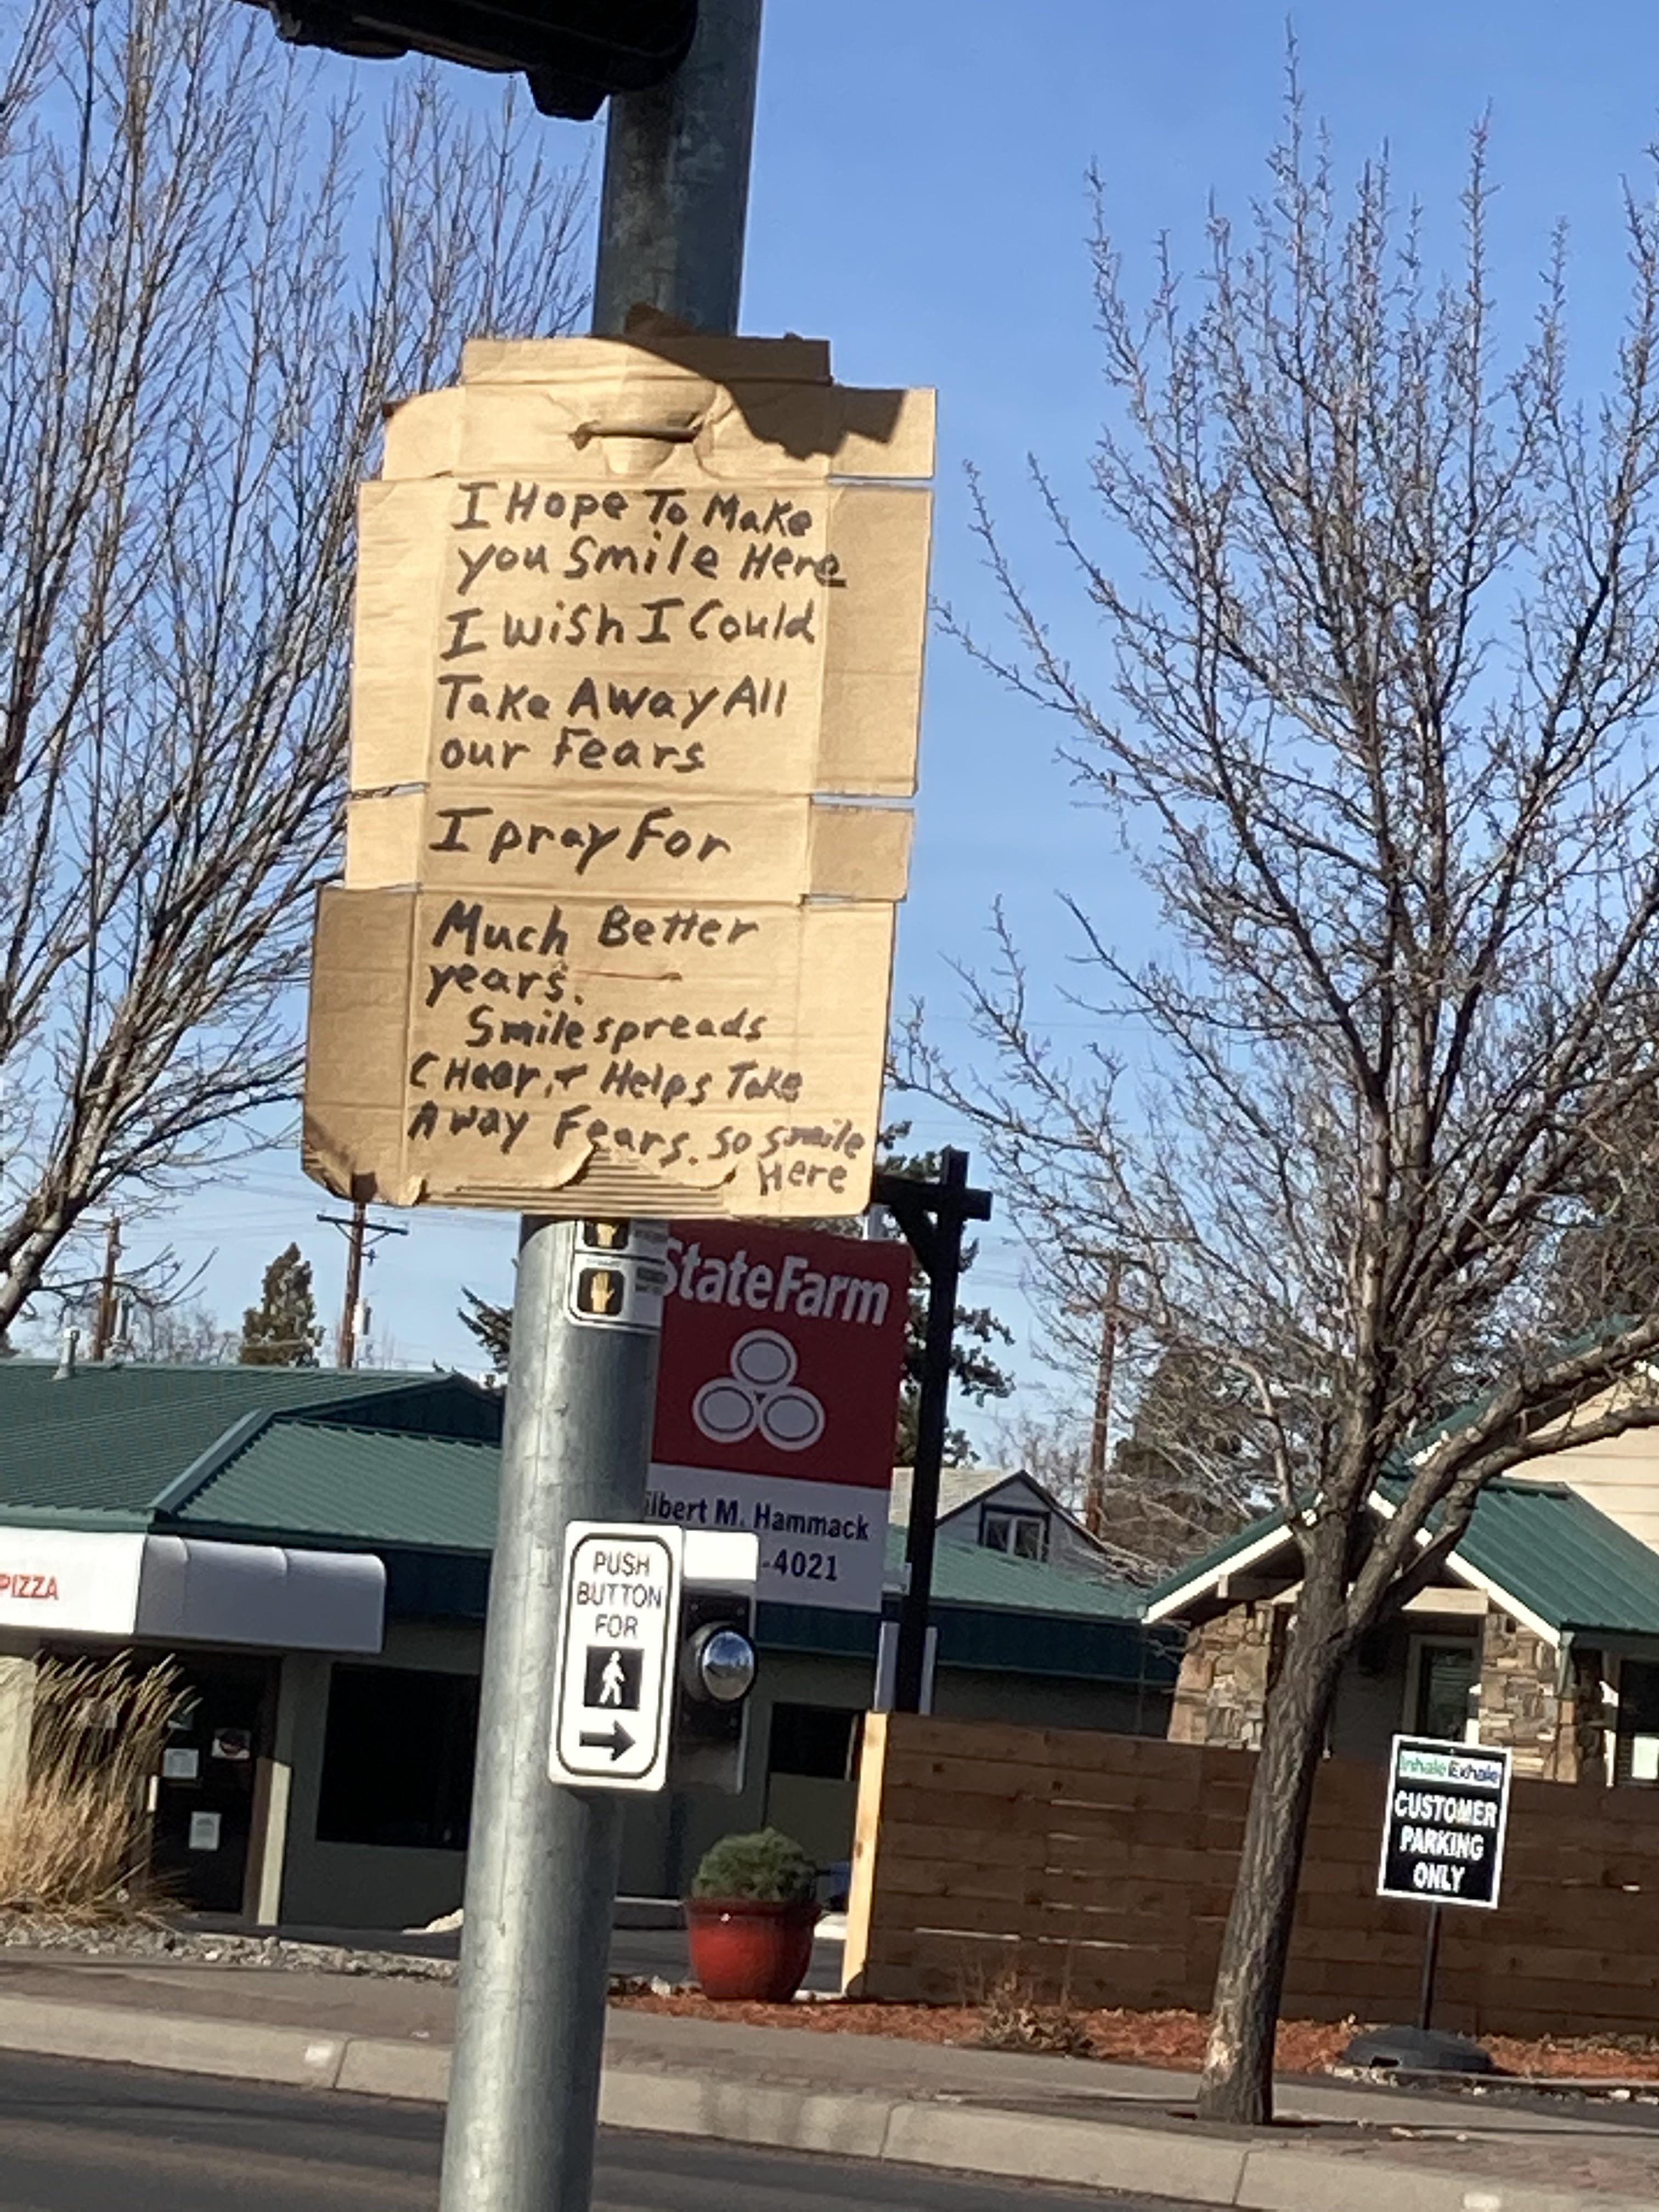 I Hope To Make
you Smile Here
I wish I Could
Take Away All
our Fears
I pray For
Much Better
years.
Smile spreads
CHeer, + Helps Take
Away Fears. so smile
Here
StateFarm
M. Hammack
-4021
PIZZA
PUSH
BUTTON
FOR
Inhale Exhale
CUSTOMER
PARKING
ONLY